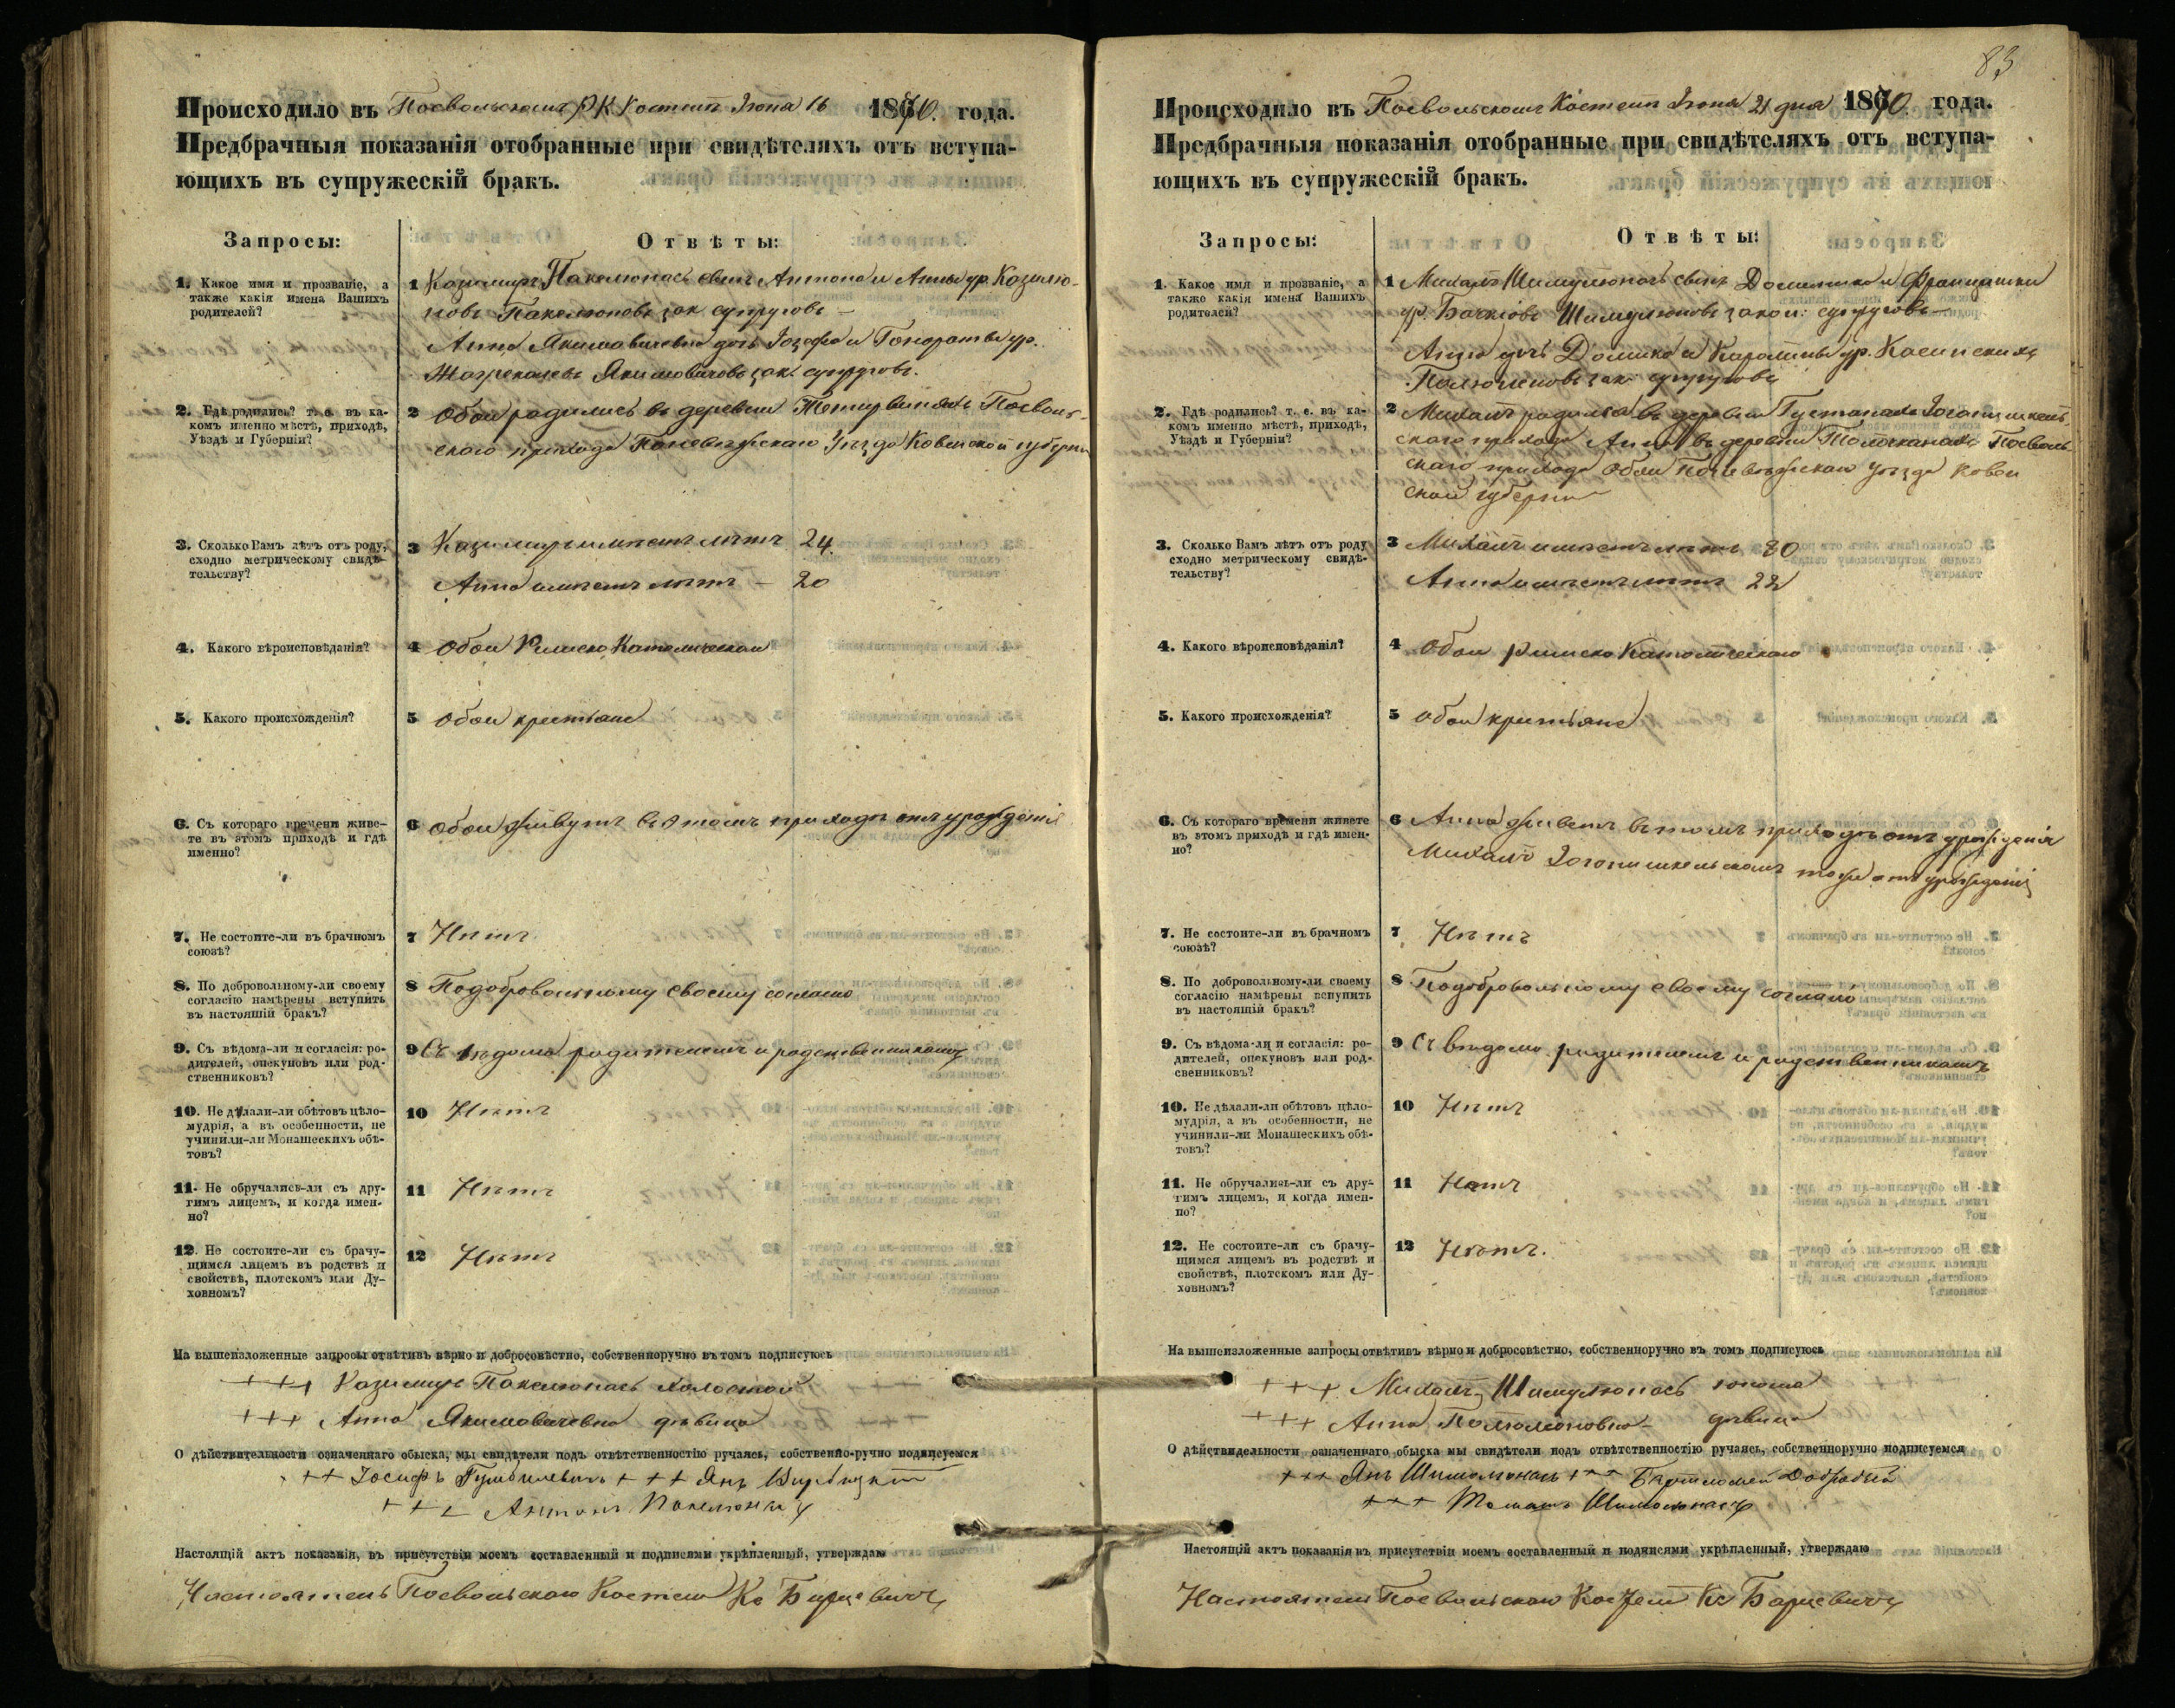 Происходило въ Посвольскомъ Р К Костелѣ Іюня 16 1870. года.
Предбрачныя показанія отобранные при свидѣтеляхъ отъ вступа-
ющихъ въ супружескій бракъ.
Запросы:
Отвѣты:
1. Какое имя и прозваніе, а
также какія имена Вашихъ
родителей?
1 Казимиръ Пакелюнасъ сынъ Антона и Анны ур.
Пакелюновъ зак. супруговъ —
Анна Якимовичовна дочь Іозефа и Гонораты ур.
Якимовичовъ зак. супруговъ.
2. Гдѣ родились? т. е. въ ка-
комъ именно мѣстѣ, приходѣ,
Уѣздѣ и Губерніи?
2 Обои родились въ деревни Посволь-
скаго прихода Поневѣжскаго Уѣзда Ковенской губерніи
3. Сколько Вамъ лѣтъ отъ роду,
сходно метрическому свидѣ-
тельству?
3 Казимиръ имѣетъ лѣтъ 24.
Анна имѣетъ лѣтъ — 20
4. Какого вѣроисповѣданія?
4 Обои Римско Католическаго
5. Какого происхожденія?
5 Обои крестьяне
6. Съ котораго времени живе-
те въ этомъ приходѣ и гдѣ
именно?
6 Обои живутъ въ томъ приходѣ отъ урожденія
7. Не состоите-ли въ брачномъ
союзѣ?
7 Нѣтъ
8. По добровольному-ли своему
согласію намѣрены вступить
въ настоящій бракъ?
8 Подобровольному своему согласію
9. Съ вѣдома-ли и согласія: ро-
дителей, опекуновъ или род-
ственниковъ?
9 Съ вѣдома родителемъ и родственникамъ
10. Не дѣлали-ли обѣтовъ цѣло-
мудрія, а въ особенности, не
учинили-ли Монашескихъ обѣ-
товъ?
10 Нѣтъ
11. Не обручались-ли съ дру-
гимъ лицемъ, и когда имен-
но?
11 Нѣтъ
12. Не состоите-ли съ брачу-
щимся лицемъ въ родствѣ и
свойствѣ, плотскомъ или Ду-
ховномъ?
12 Нѣтъ
На вышеизложенные запросы отвѣтивъ вѣрно и добросовѣстно, собственноручно въ томъ подписуюсь
+++ Казимиръ Пакелюнасъ холостой
+++ Анна Якимовичовна дѣвица
О дѣйствительности означеннаго обыска, мы свидѣтели подъ отвѣтственностію ручаясь, собственно-ручно подписуемся
+++ Іосифъ +++ Янъ
+++ Антонъ
Настоящій актъ показанія, въ присутствіи моемъ составленный и подписями укрѣпленный, утверждаю
Настоятель Посвольскаго Костела Кс
83
Происходило въ Посвольскомъ Костелѣ Іюня 21 дня 1870. года.
Предбрачныя показанія отобранные при свидѣтеляхъ отъ вступа-
ющихъ въ супружескій бракъ.
Запросы:
Отвѣты:
1. Какое имя и прозваніе, а
также какія имена Вашихъ
родителей?
1 Михалъ Шимулюнасъ сынъ Доминика и Францишки
ур. Шимулюновъ закон: супруговъ —
Анна дочь Домика и Каралины ур. Касинскихъ
зак: супруговъ
2. Гдѣ родились? т. е. въ ка-
комъ именно мѣстѣ, приходѣ,
Уѣздѣ и Губерніи?
2 Михалъ родился въ деревни
скаго прихода Анна въ деревни Посволь-
скаго прихода Обои Поневѣжскаго уѣзда Ковен
ской губерніи
3. Сколько Вамъ лѣтъ отъ роду
сходно метрическому свидѣ-
тельству?
3 Михалъ имѣетъ лѣтъ 30
Анна имѣетъ лѣтъ 22
4. Какого вѣроисповѣданія?
4 Обои римско Католическаго
5. Какого происхожденія?
5 Обои крестьяне
6. Съ котораго времени живете
въ этомъ приходѣ и гдѣ имен-
но?
6 Анна живетъ въ томъ приходѣ отъ урожденія
Михалъ тоже отъ урожденія
7. Не состоите-ли въ брачномъ
союзѣ?
7 Нѣтъ
8. По добровольному-ли своему
согласію намѣрены вступить
въ настоящій бракъ?
8 Подобровольному своему согласію
9. Съ вѣдома-ли и согласія: ро-
дителей, опекуновъ или род-
свенниковъ?
9 Съ вѣдома родителемъ и родственникамъ
10. Не дѣлали-ли обѣтовъ цѣло-
мудрія, а въ особенности, не
учинили-ли Монашескихъ обѣ-
товъ?
10 Нѣтъ
11. Не обручались-ли съ дру-
гимъ лицемъ, и когда имен-
но?
11 Нѣтъ
12. Не состоите-ли съ брачу-
щимся лицемъ въ родствѣ и
свойствѣ, плотскомъ или Ду-
ховномъ?
12 Нѣтъ.
На вышеизложенные запросы отвѣтивъ вѣрно и добросовѣстно, собственноручно въ томъ подписуюсь
+++ Михалъ Шимулюнасъ юноша
+++ Анна дѣвица
О дѣйствидельности означеннаго обыска мы свидѣтели подъ отвѣтственностію ручаясь, собственноручно подписуемся
+++ Янъ +++ Бартломей
+++ Томашъ
Настоящій актъ показанія въ присутствіи моемъ составленный и подписями укрѣпленный, утверждаю
Настоятель Посвольскаго Костела Кс